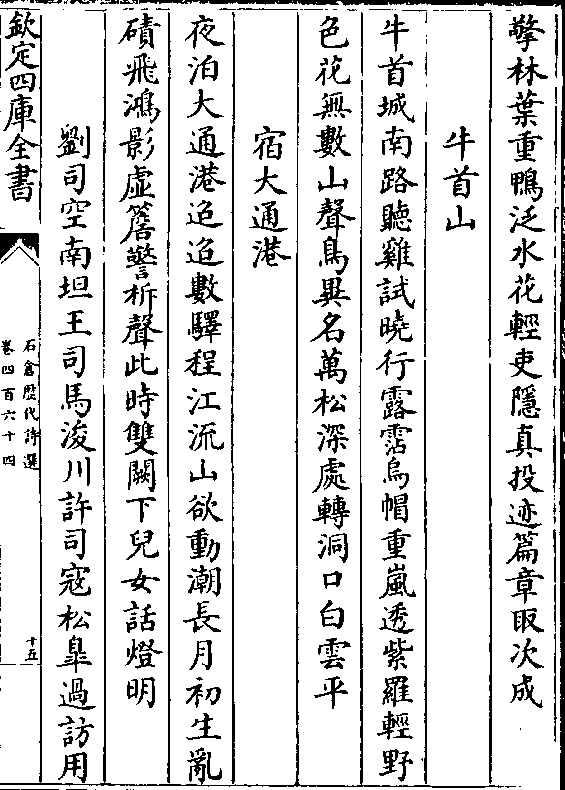 擎林葉重鴨泛水花輕吏隱真投迹篇章取次成
牛首山
牛首城南路聽雞試曉行露霑烏帽重嵐透紫羅輕野
色花無數山聲鳥異名萬松深處轉洞口白雲平
宿大通港
夜泊大通港迢迢數驛程江流山欲動潮長月初生亂
磧飛鴻影虛簷警柝聲此時雙闕下兒女話燈明
劉司空南坦王司馬浚川許司寇松臯過訪用
欽定四庫全書
石倉歷代詩選
卷四百六十四
十五